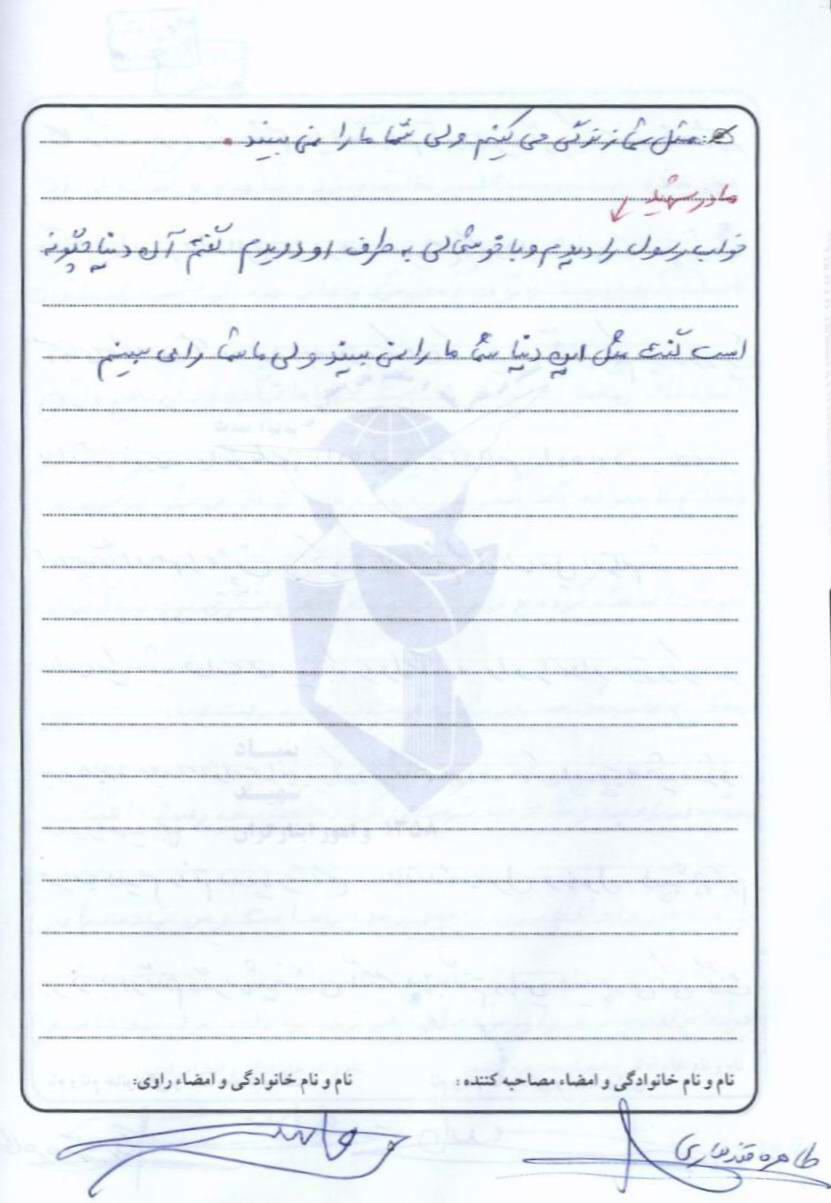 مثل شما زندگی می کنیم ولی شما ما را نمی بینید.
مادر شهید
خواب رسول را دیدم و با خوشحالی به طرف او دویدم گفتم آن دنیا چگونه
است گفت مثل این دنیا شما ما را نمی بینید ولی ما شما را می بینیم
بنیاد
شهید
و امور ایثارگران ۱۳۵۸
نام و نام خانوادگی و امضاء مصاحبه کننده: نام و نام خانوادگی و امضاء راوی:
طاهره قندهاری